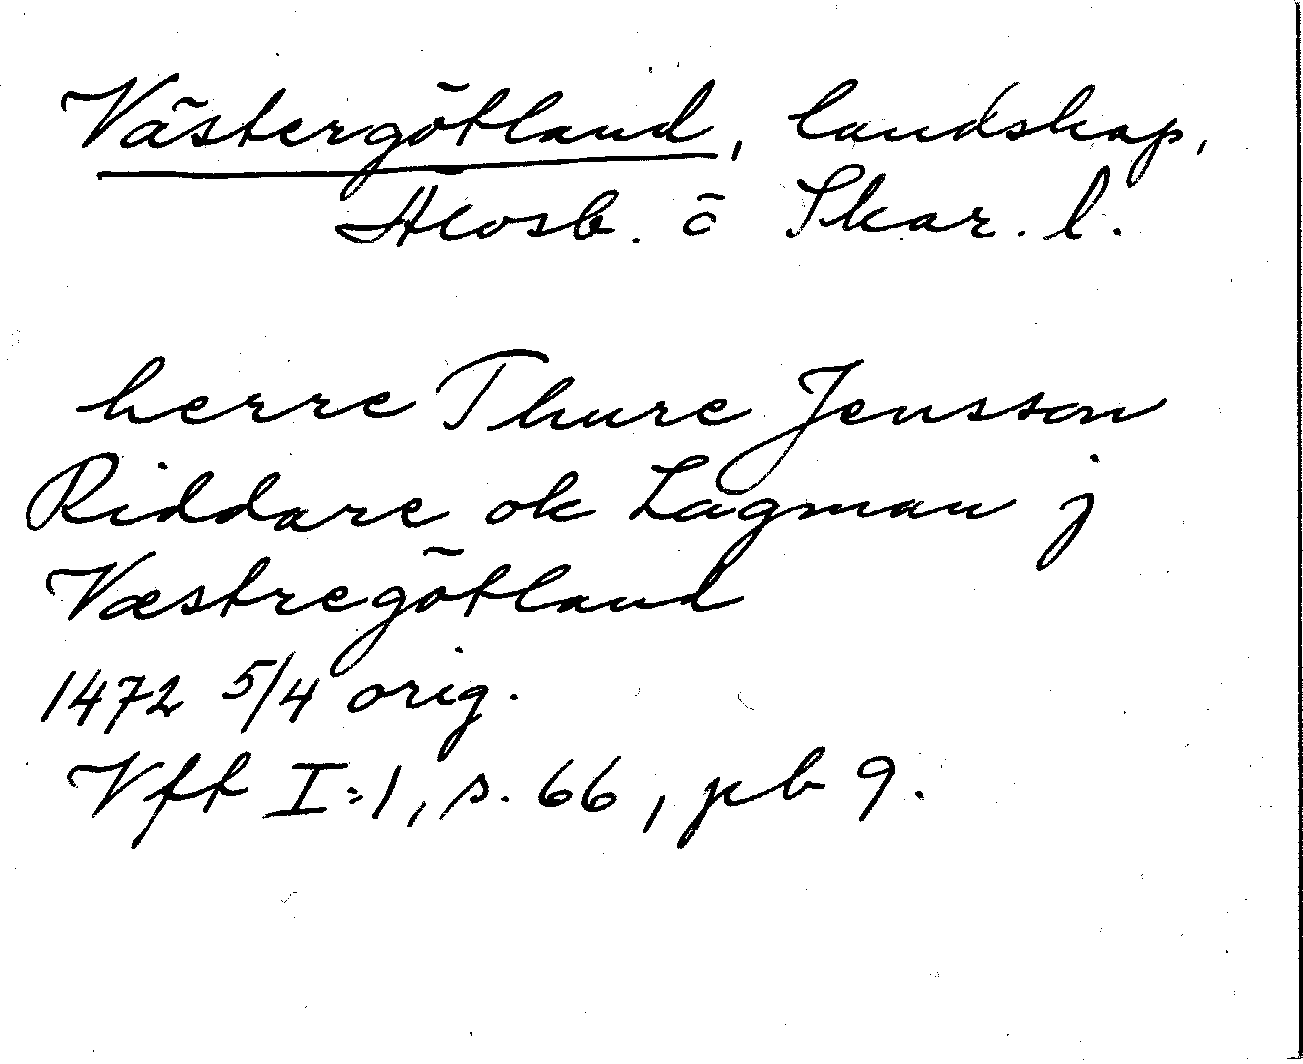 Västergötland, landskap,
Älvsb. o Skar. l.
herre Thure Jensson
Riddare ok Lagman j
Væstregötland
1472 5/4 orig.
Vft I:1, s. 66, pb 9.